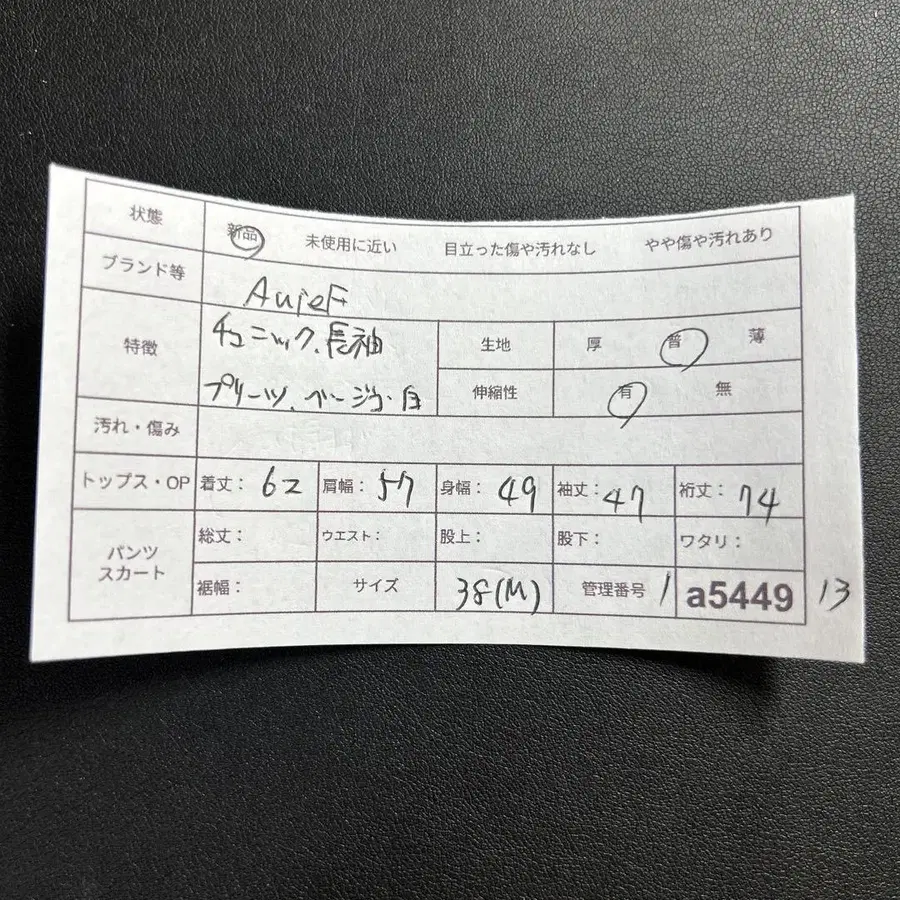 状態 新品 未使用に近い 目立った傷や汚れなし やや傷や汚れあり
ブランド等 AuieF
特徴 チュニック、長袖 生地 厚 普 薄
プリーツ、ベージュ・白 伸縮性 有 無
汚れ・傷み
トップス・OP 着丈: 62 肩幅: 57 身幅: 49 袖丈: 47 裄丈: 74
パンツ スカート 総丈: ウエスト: 股上: 股下: ワタリ:
裾幅: サイズ 38(M) 管理番号 1 a5449 13